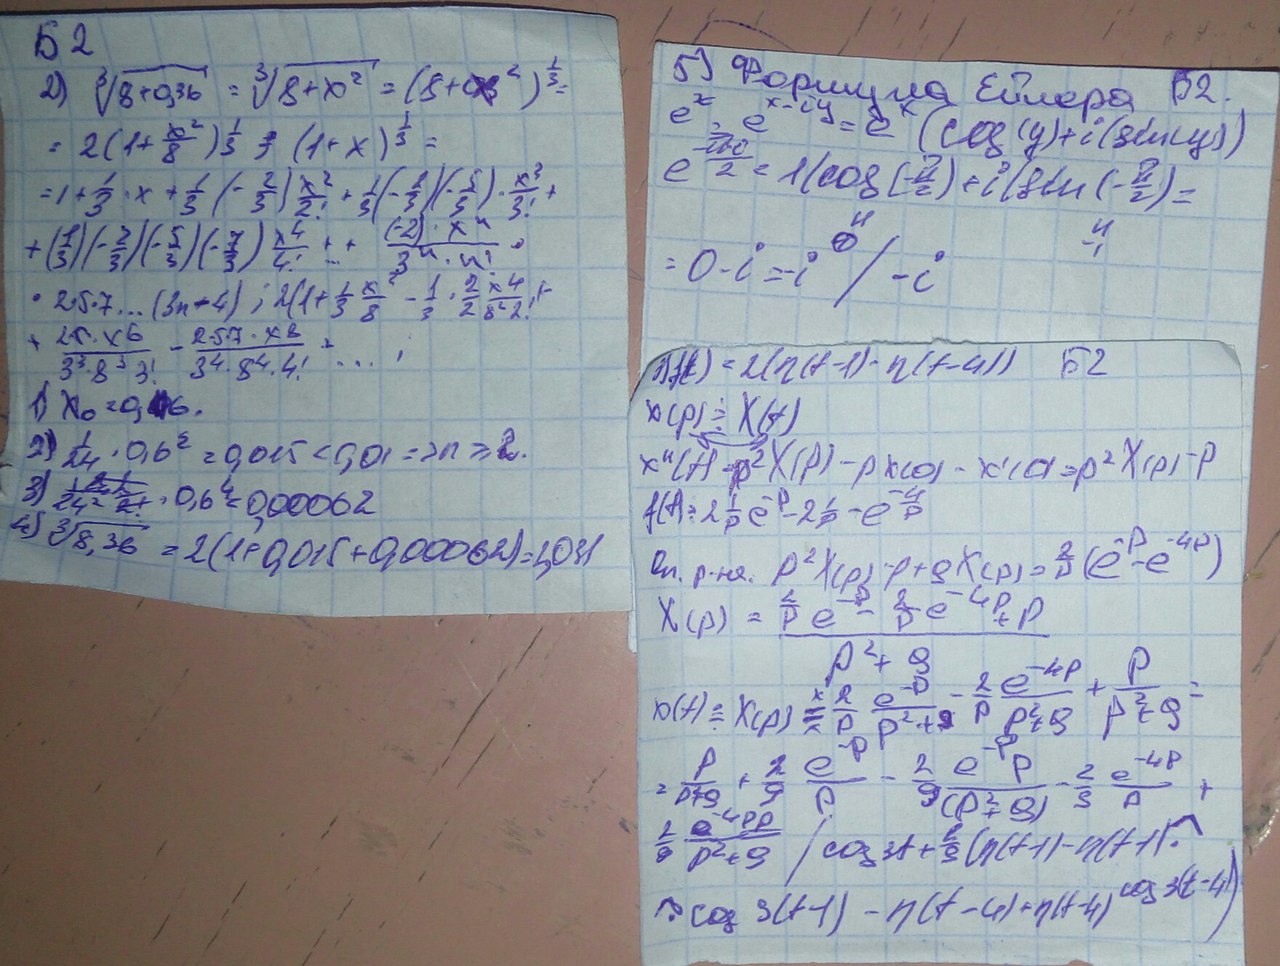 Б2
2) ∛(8+0,36) = ∛(8+x²) = (8+x²)^(1/3) =
= 2(1+x²/8)^(1/3) ; (1+x)^(1/3) =
= 1+1/3·x+1/3(-2/3)x²/2!+1/3(-2/3)(-5/3)·x³/3!+
+(1/3)(-2/3)(-5/3)(-7/3)x⁴/4!+..+ (-2)·xⁿ/(3ⁿ·n!)·
·2·5·7...(3n+4); 2(1+1/3 x²/8 - 1/3·2/2 x⁴/(8²2!)+
+ 2·5·x6/(3³·8³·3!) - 2·5·7·x8/(3⁴·8⁴·4!) + ....;
1) x₀=0,6.
2) 1/24·0,6² = 0,015<0,01 => n≥2.
3) 0,6⁴ 0,00062
4) ∛8,36 = 2(1+0,015+0,00062)=2,031
5) Формула Ейлера Б2.
e^z, e^(x+iy) = e^x (cos(y)+i(sin(y))
= 1(cos(-π/2)+i(sin(-π/2)=
0 -1
= 0-i=-i / -i
f(t) = 2(η(t-1)-η(t-4)) Б2
x(p) ≓ X(t)
x''(t) = p²X(p)-px(0)-x'(0)=p²X(p)-p
f(t)=2 1/p e^-p - 2 1/p - e^-4/p
Оп. р-ня. p²X(p)-p+9X(p)=2/p(e^-p-e^-4p)
X(p) = (2/p e^-p - 2/p e^-4p + p)/(p²+9)
x(t) ≓ X(p) = 2/p e^-p/(p²+9) - 2/p e^-4p/(p²+9) + p/(p²+9) =
= p/(p²+9) + 2/9 e^-p/p - 2/9 e^-p p/(p²+9) - 2/9 e^-4p/p +
2/9 e^-4p p/(p²+9) / cos3t+2/9(η(t-1)-η(t-1)·
cos 3(t-1) - η(t-4)+η(t-4) cos3(t-4))